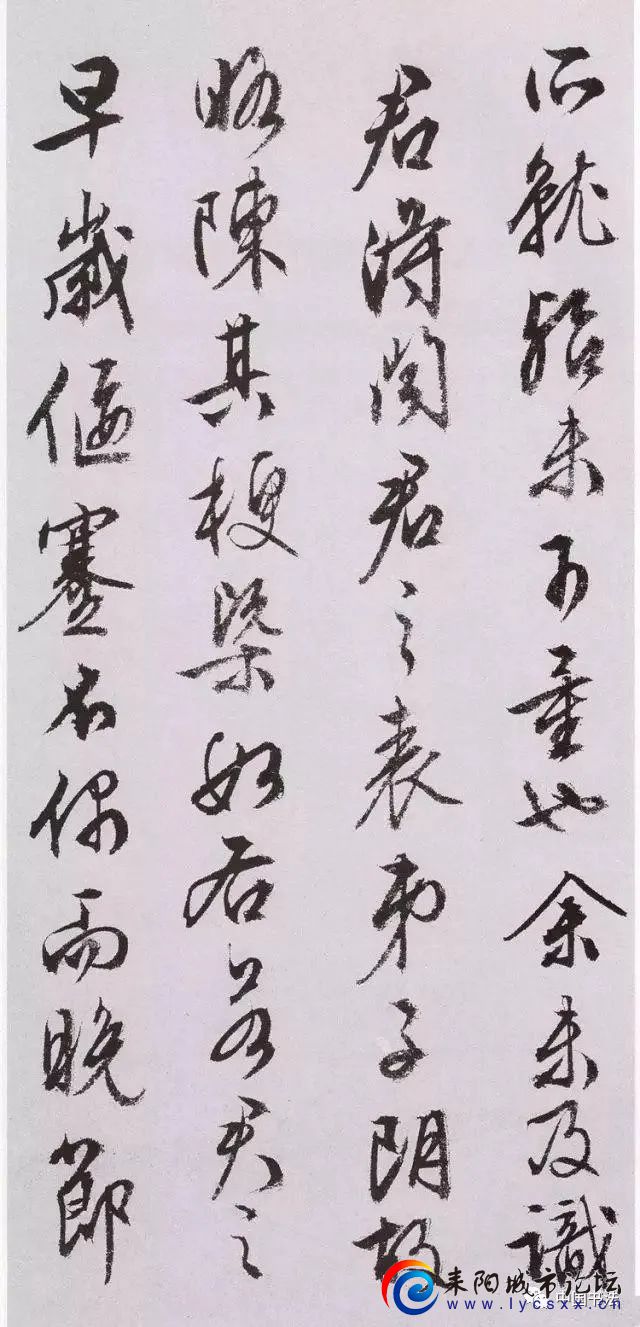 所就殆未可量也余未及識
君得閱君之表弟子朗故
略陳其梗槩如右若君之
早歲偃蹇不偶而晚節
耒阳城市论坛
www.lycsxx.cn
中国书法